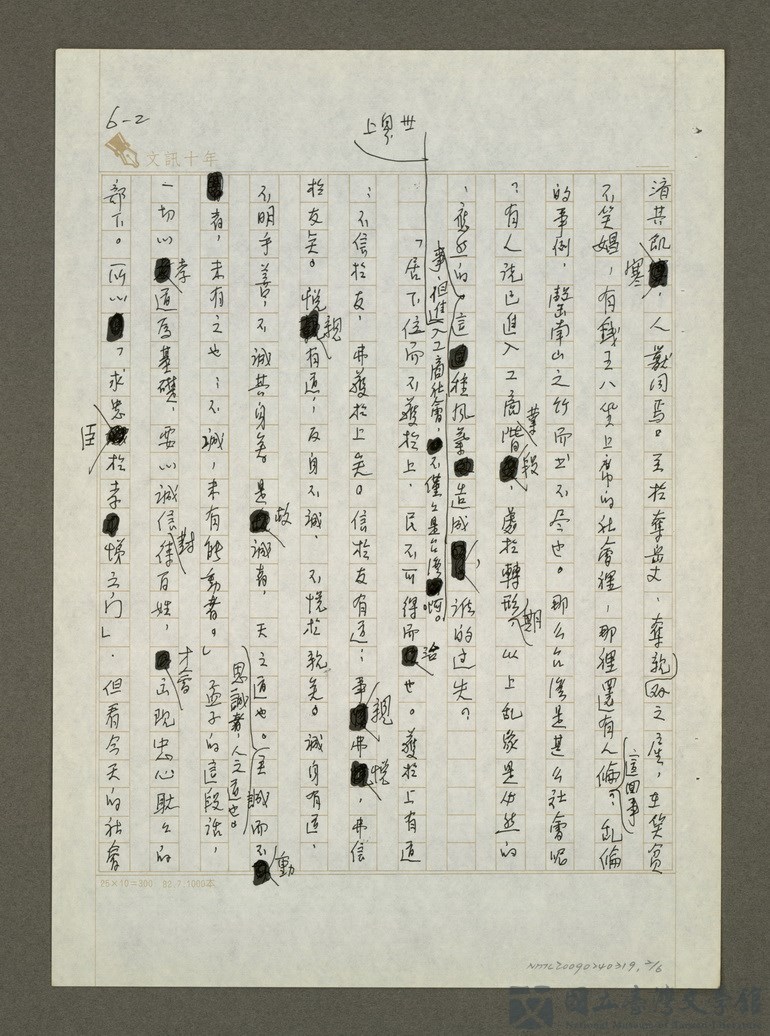 6-2
世界上
文訊十年
清其飢寒，人獸同焉。至於奪岳丈、奪親友之產，在笑貧
不笑娼，有錢王八坐上席的社會裡，那裡還有人倫這回事？亂倫
的事例，罄南山之竹而書不尽也。那么台湾是甚么社會呢
？有人說已進入工商業階段，處於轉形期，以上乱象是必然的
、應該的。這種風氣造成，誰的过失？
事，但進入工商社會，不僅仅是台湾啊。
「居下位而不獲於上，民不可得而治也。獲於上有道
：不信於友，弗獲於上矣。信於友有道：事親弗悅，弗信
於友矣。悅親有道：反身不誠，不悅於親矣。誠身有道，
不明乎善，不誠其身矣。是故誠者，天之道也。思誠者，人之道也。至誠而不動
者，未有之也；不誠，未有能動者。」孟子的這段話，
一切以孝道為基礎，要以誠信對待百姓，才會出現忠心耿々的
部下。所以，「求忠臣於孝悌之门」．但看今天的社會
25×12=300 82.7.1000本
NMLZ0090240319, 2/6
國立臺灣文學館
National Museum of Taiwan Literature